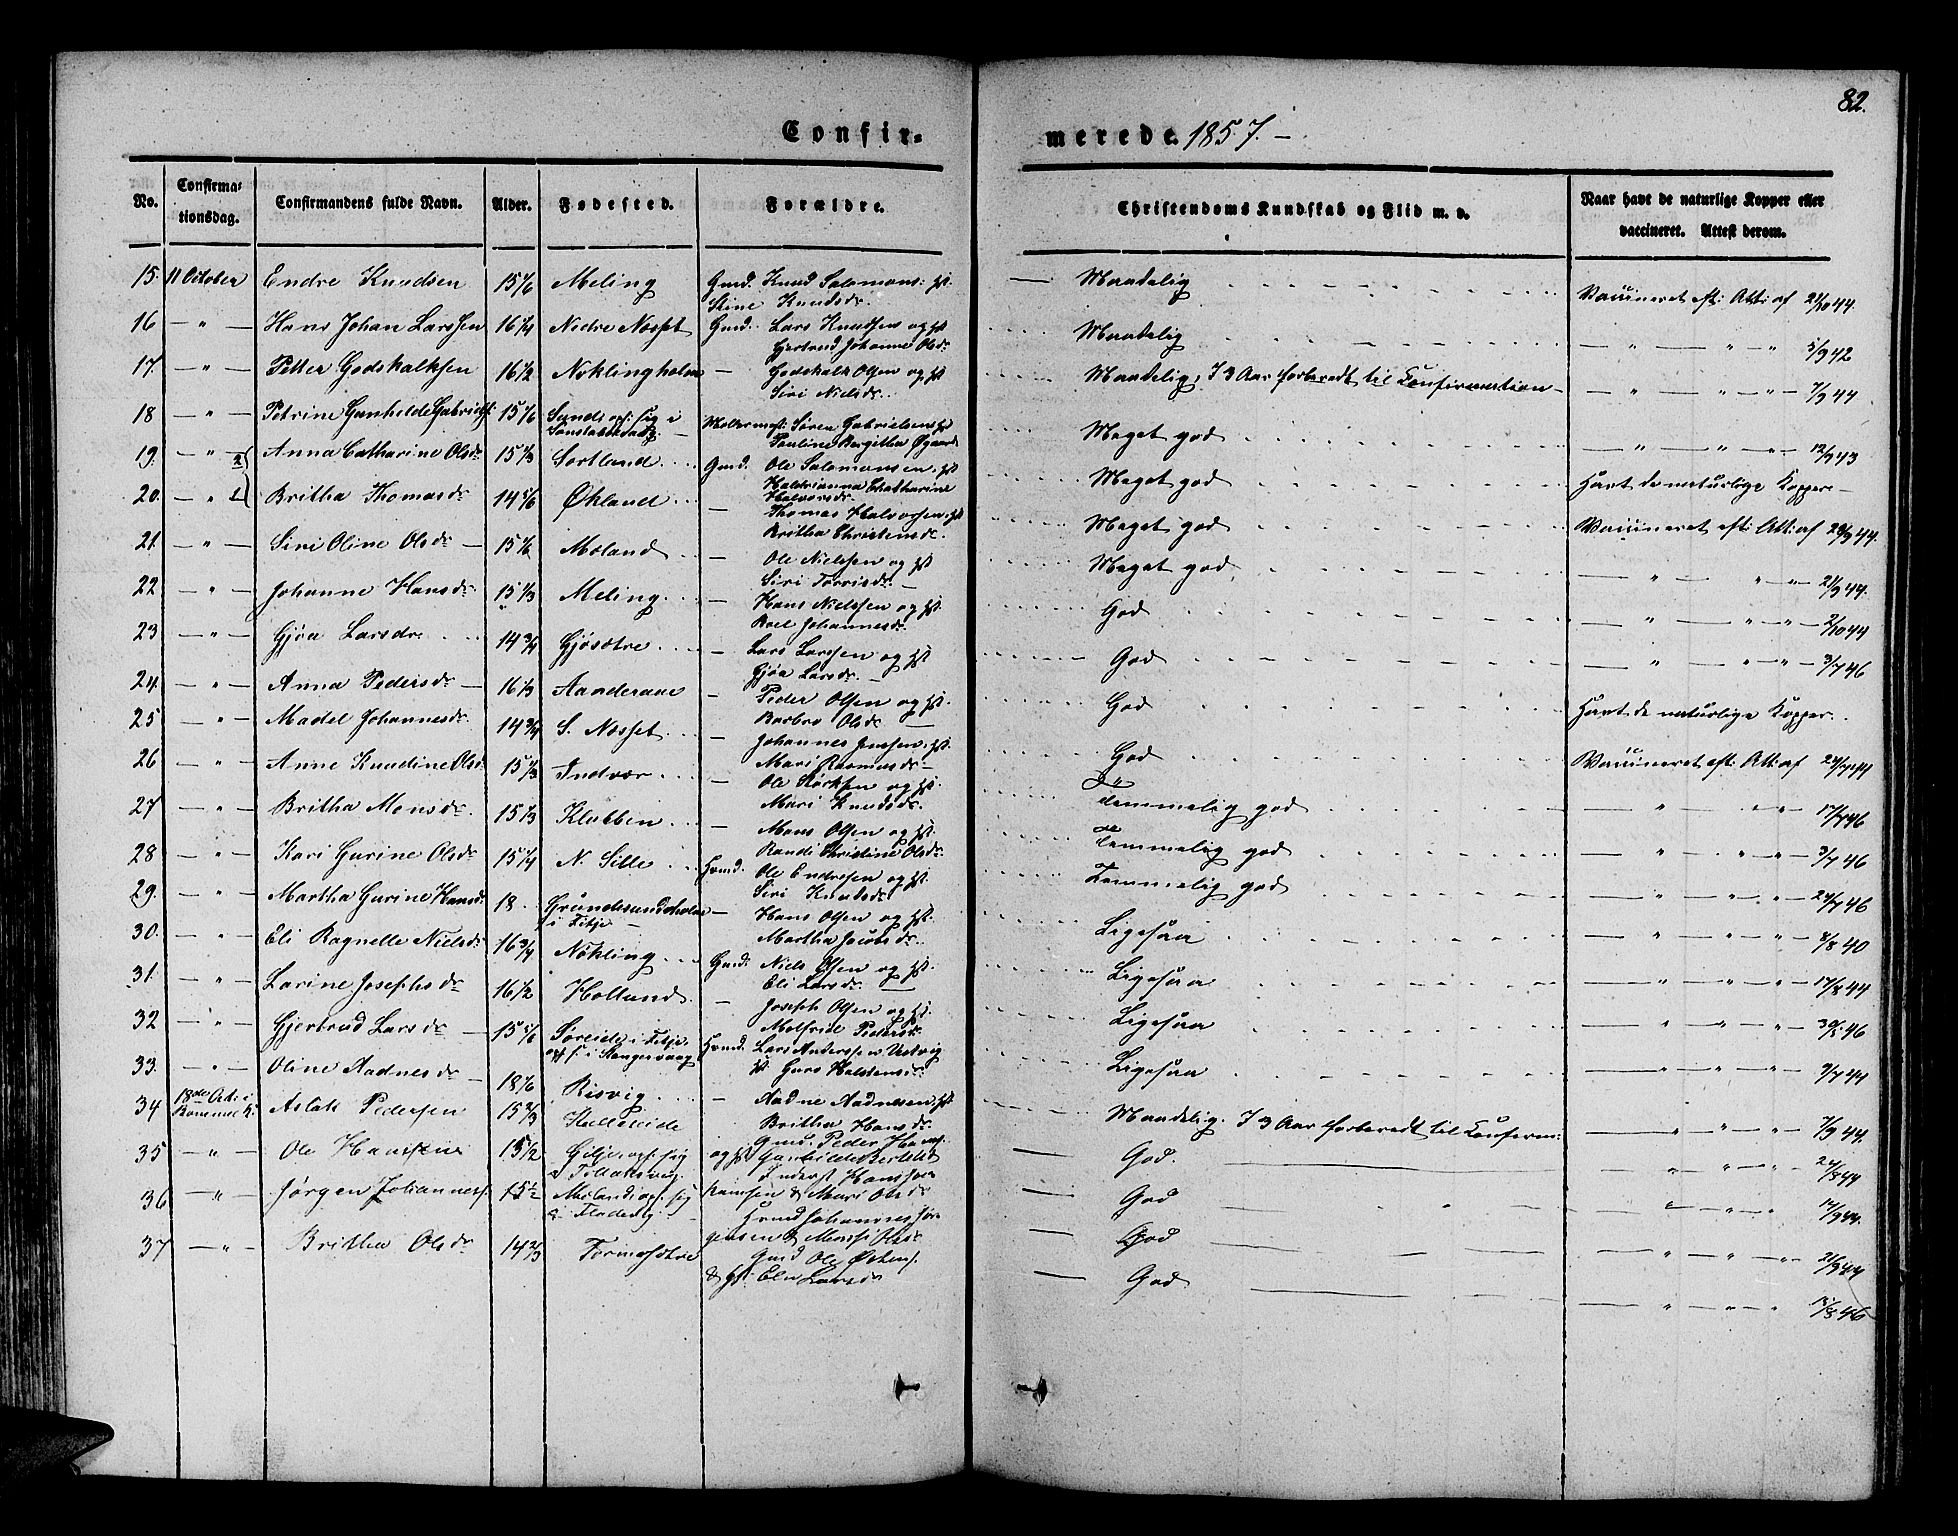 82.
Confirmerede 1857. —
No. Confirmationsdag. Confirmandens fulde Navn. Alder. Fødested. Forældre. Christendoms Kundskab og Flid m. v. Naar havt de naturlige Kopper eller vaccineret. Attest derom.
15. 11 October Endre Knudsen 15 1/6 Meling Gmd. Knud Salomons: hst. Stine Knudsdr. — Maadelig Vaccineret eft: Att: af 21/10 44.
16 — " — Hans Johan Larssen 16 1/4 Nedre Nosset Gmd. Lars Knudsen og hst Gjertrud Johanne Olsdr Maadelig — " — " — " 5/9 42
17. — " — Petter Godskalksen 16 1/2 Noklingholm — Godskalk Olsen og hst Siri Nielsdr. Maadelig, I 3 Aar forberedt til Confirmation — — " — " — " 7/9 44
18 — " — Petrine Gunhilde Gabriels: 15 1/6 Sunds opf: sig i Søren Gabrielsen hst Pauline Bergitha Meget god — " — " — " 12/9 43
19. — " — 2 Anna Catharine Olsdr 15 1/3 Sortland Gmd. Ole Salomonsen, hst Chatharine Halvorsdr. Meget god Havt de naturlige Kopper —
20. — " 1 Britha Thomasdr 14 5/6 Økland — Thomas Halvorsen, hst Britha Christensdr. Meget god Vaccineret eft: Att: af 29/9 44.
21. — " — Siri Oline Olsdr — 15 1/6 Moland — Ole Nielssen og hst Siri Torrisdr. — Meget god — " — " — " 2/9 44.
22 — " — Johanne Hansdr. 15 1/3 Meling — Hans Nielssen og hst Boel Johannesdr. God — " — " — " 2/10 44
23 — " — Gjøa Larsdr 14 3/4 Gjøsætre — Lars Larssen og hst Gjøa Larsdr. — God — " — " — " 3/7 46
24. — " — Anna Pedersdr — 16 1/3 Aanderaae — Peder Olsen og hst. Barbro Olsdr — God Havt de naturlige Kopper.
25 — " Madel Johannesdr 14 3/4 S. Nosset — Johannes Jenssen, hst. Mari Rasmusdr — God Vaccineret eft: Att: af 24/7 44
26 — " — Anne Knudine Olsd. 15 2/3 Indvær Ole Størksen og hst. Mari Knudsdr. Temmelig god — " — " — " 17/7 46
27 — " — Britha Monsdr. 15 1/3 Klubben — Mons Olsen og hst. Randi Christine Olsdr. Temmelig god — " — " — " 3/7 46
28 — " — Kari Gurine Olsdr 15 1/4 N. Sille Hmd. Ole Endresen og hst. Siri Knudsdr. Temmelig god — " — " — " 24/7 46
29. — " — Martha Gurine Hansd. 18 Grundesundsholm i Fitje — — Hans Olsen og hst. Martha Jacobsdr. Ligesaa — " — " — " 8/8 40
30. — " — Eli Ragnelle Nielsdr 16 3/4 Nökling Gmd. Niels Olsen og hst. Eli Larsdr. — Ligesaa — " — " — " 17/8 44
31. — " Larine Josephsdr 16 1/2 Holland — Joseph Olsen og hst. Malfrid Pedersdr. Ligesaa — " — " — " 30/5 46
32 — " — Gjertrud Larsdr — 15 5/6 Søreide i Fitje opf: i Stangervaag Hmd. Lars Anderssen Vestvig hst. Guro Halstensdr. Ligesaa — " — " — " 9/7 44
33. — " — Oline Aadnesdr — 18 1/6 Risvig — Aadne Aadnesen, hst Britha Hansdr. Maadelig. I 3 Aar forberedt til Conferm: — " — " — " 7/9 44.
34 18de Oct: i Aslak Pedersen 15 2/3 Helleseide Gmd. Peder Hans. og hst Gunhilde God. — " — " — " 24/8 44
35 — " — Ole Hanssen 15 1/2 Gilje opf: sig i Inderst Hans & Mari Olsdr God — " — " — " 14/9 44.
36 — " — Jørgen Johannes. 15 1/2 Moland opf: sig i Fladevig. — Hmd Johannes Jørgensen & Olsdr God — " — " — " 26/9 44
37 — " — Britha Olsdr 14 2/3 Tormosætre Gmd Ole Østens. & hst. Elen Larsdr God — " — " — " 18/8 46